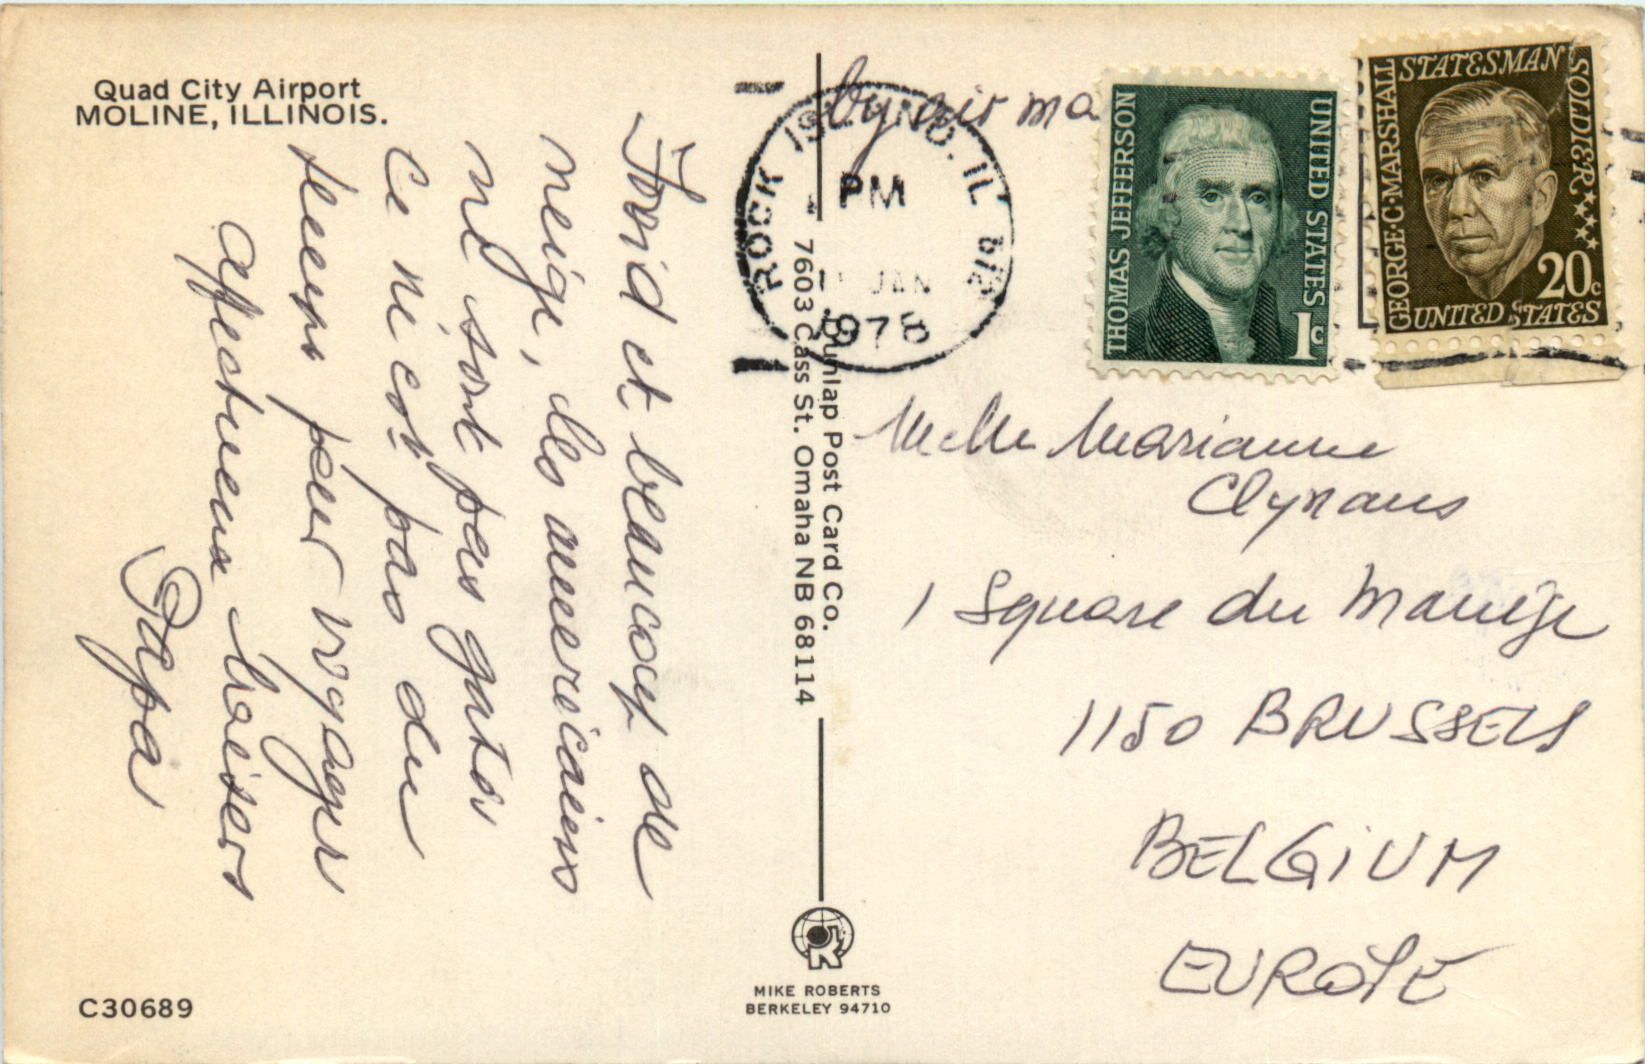 Quad City Airport
MOLINE, ILLINOIS.
Froid et beaucoup de
neige, les americains
ne sont pas gatés
Ce n'est pas du
temps pour voyager
affectueux baisers
Papa
C30689
Dunlap Post Card Co.
7603 Cass St. Omaha NB 68114
MIKE ROBERTS
BERKELEY 94710
by air ma
ROCK ISLAND, IL 612
PM
JAN
1975
THOMAS JEFFERSON
UNITED STATES
1c
GEORGE·C·MARSHALL
STATESMAN SOLDIER
20c
UNITED STATES
Melle Marianne
1 Square du Manège
1150 BRUSSELS
BELGIUM
EUROPE